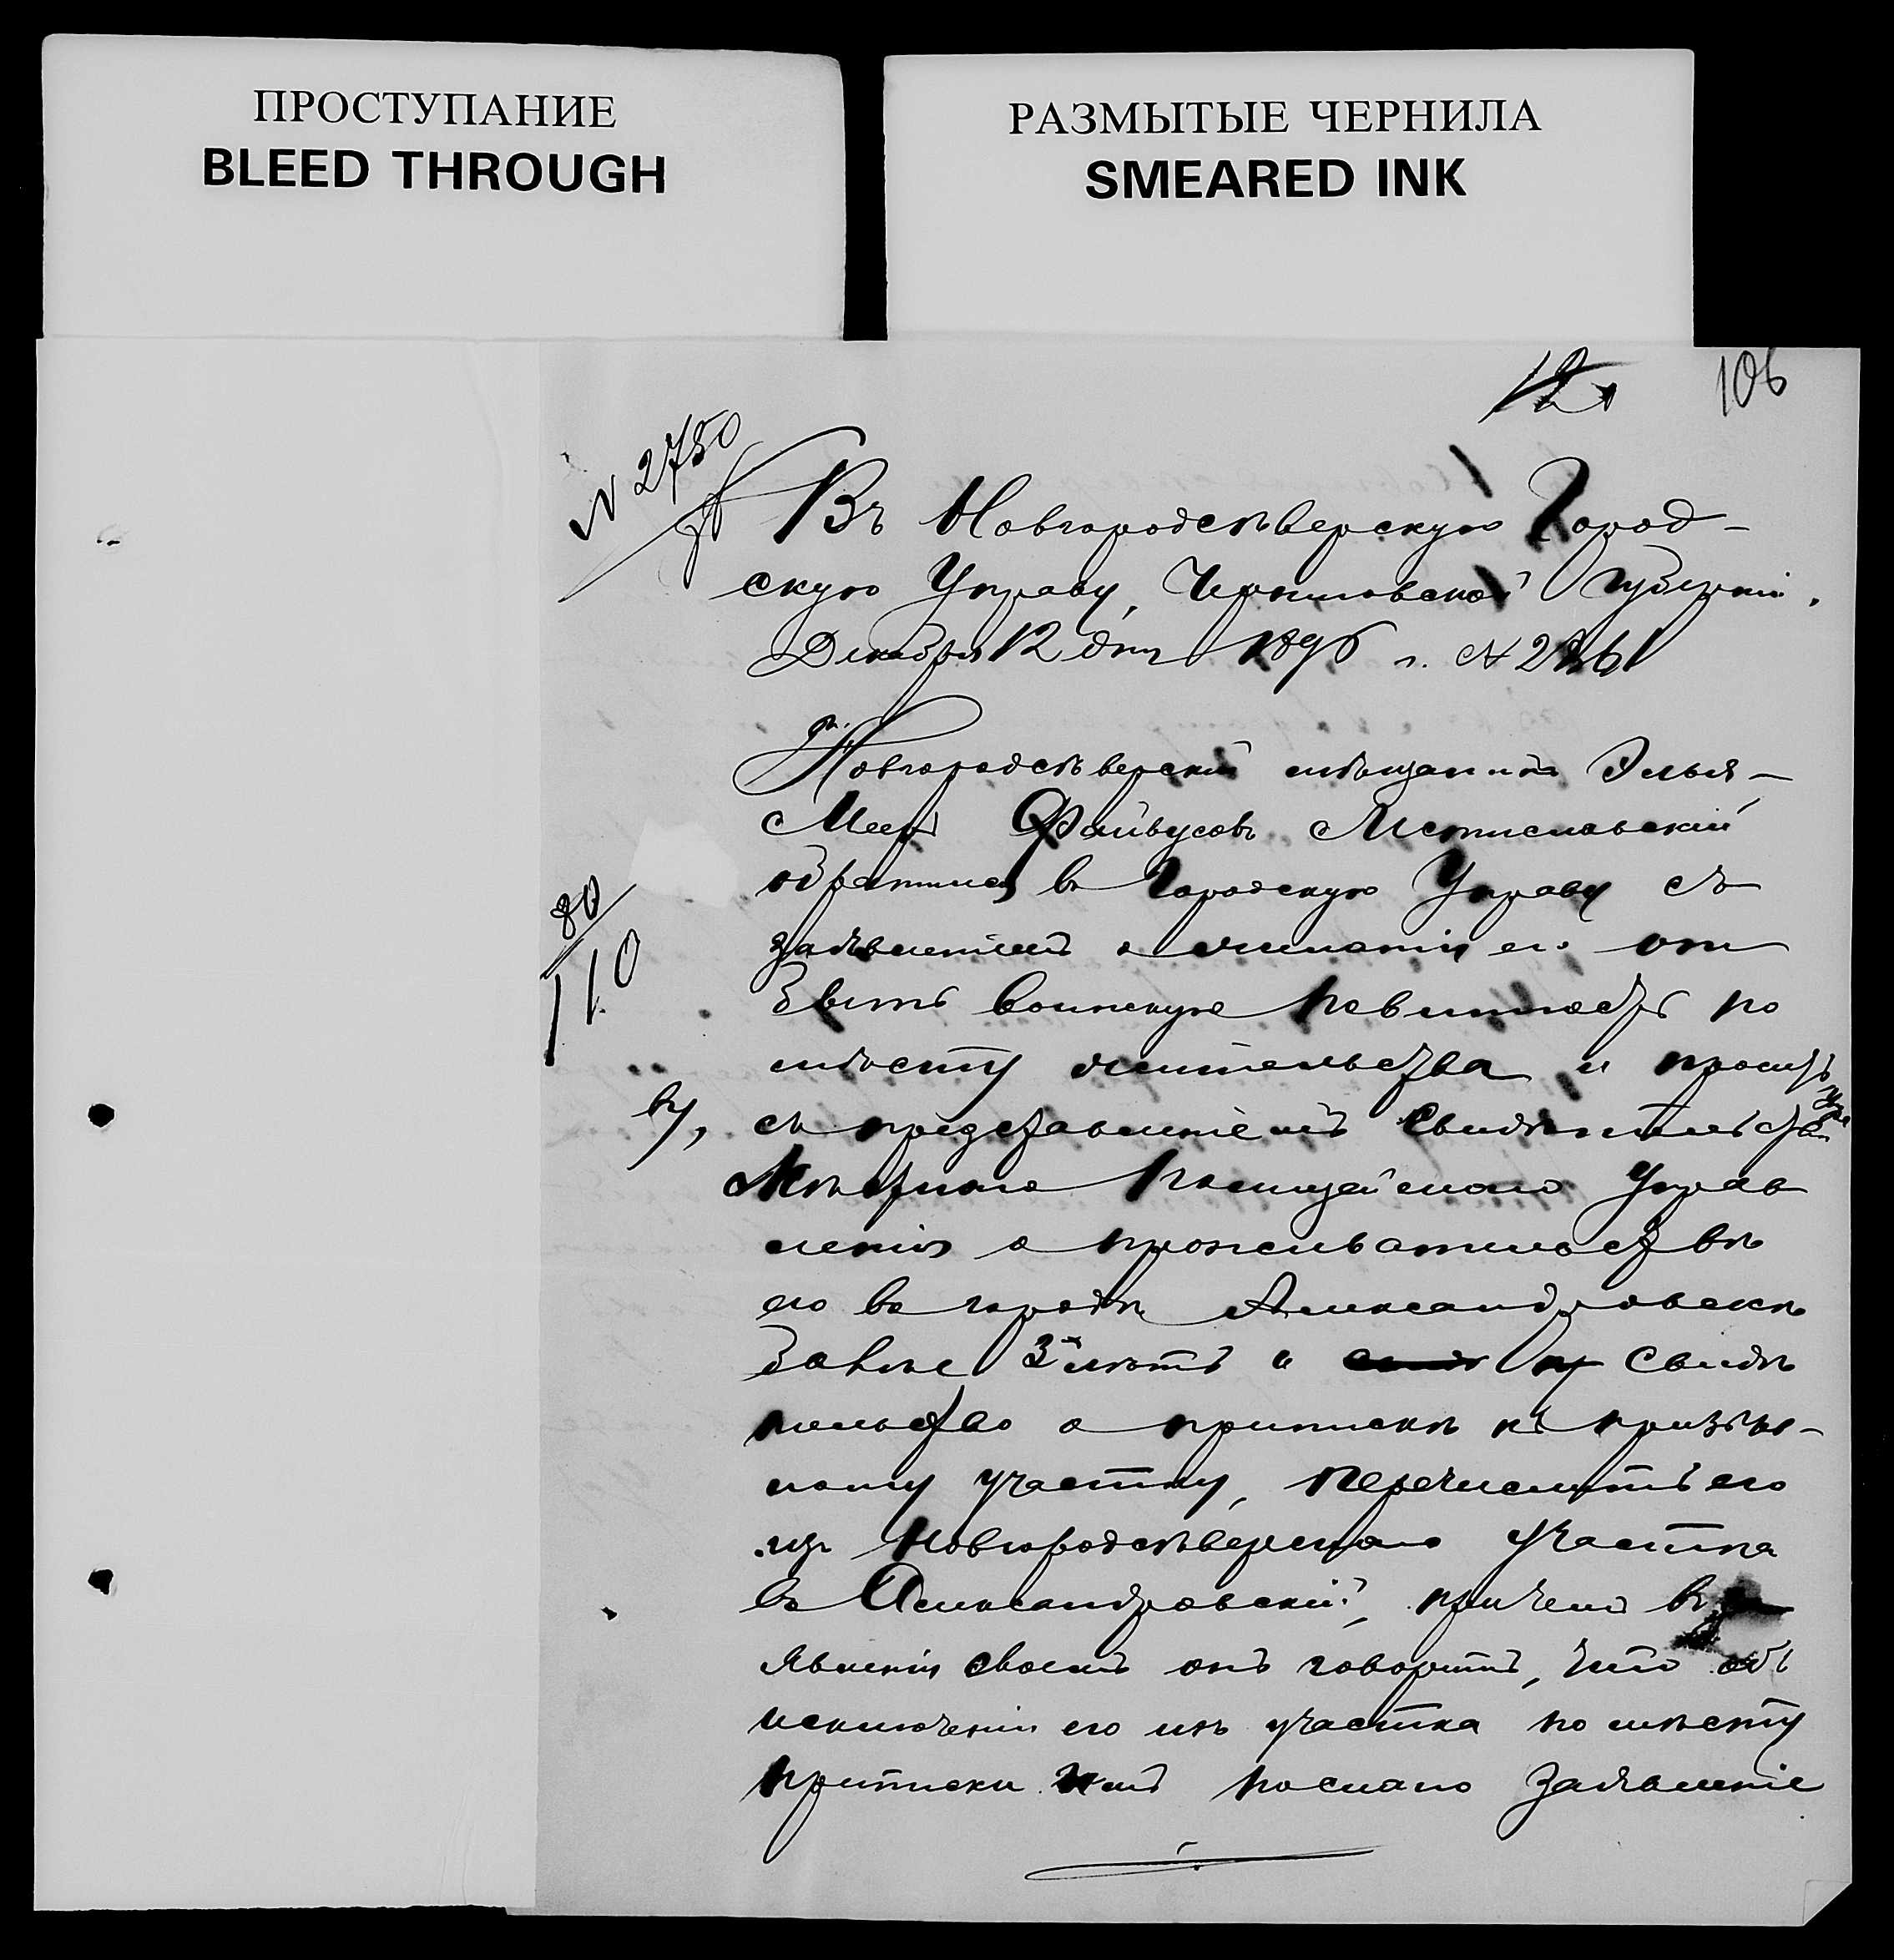 ПРОСТУПАНИЕ
BLEED THROUGH
РАЗМЫТЫЕ ЧЕРНИЛА
SMEARED INK
12
106
N 2750
Въ Новгородсѣверскую Город-
скую Управу, Черниговской Губерніи.
Декабря 12 дня 1896 г. N
Новгородсѣверскій мѣщанинъ Элья-
Меер Файвусовъ Мстиславскій
обратился въ Городскую Управу съ
заявленіемъ о желаніи его от
быть воинскую повинность по
мѣсту жительства и проситъ
съ представленіемъ Свидѣтельства
Полицейскаго Управ
ленія о проживательствѣ
его въ городѣ Александровскѣ
болѣе 3х лѣтъ и свидѣ
тельство о припискѣ къ призыв-
ному участку, перечислить его
изъ Новгородсѣверскаго участка
въ Александровскій, при чемъ въ за
явленіи своемъ онъ говоритъ, что объ
исключеніи его изъ участка по мѣсту
приписки имъ послано заявленіе
80
110